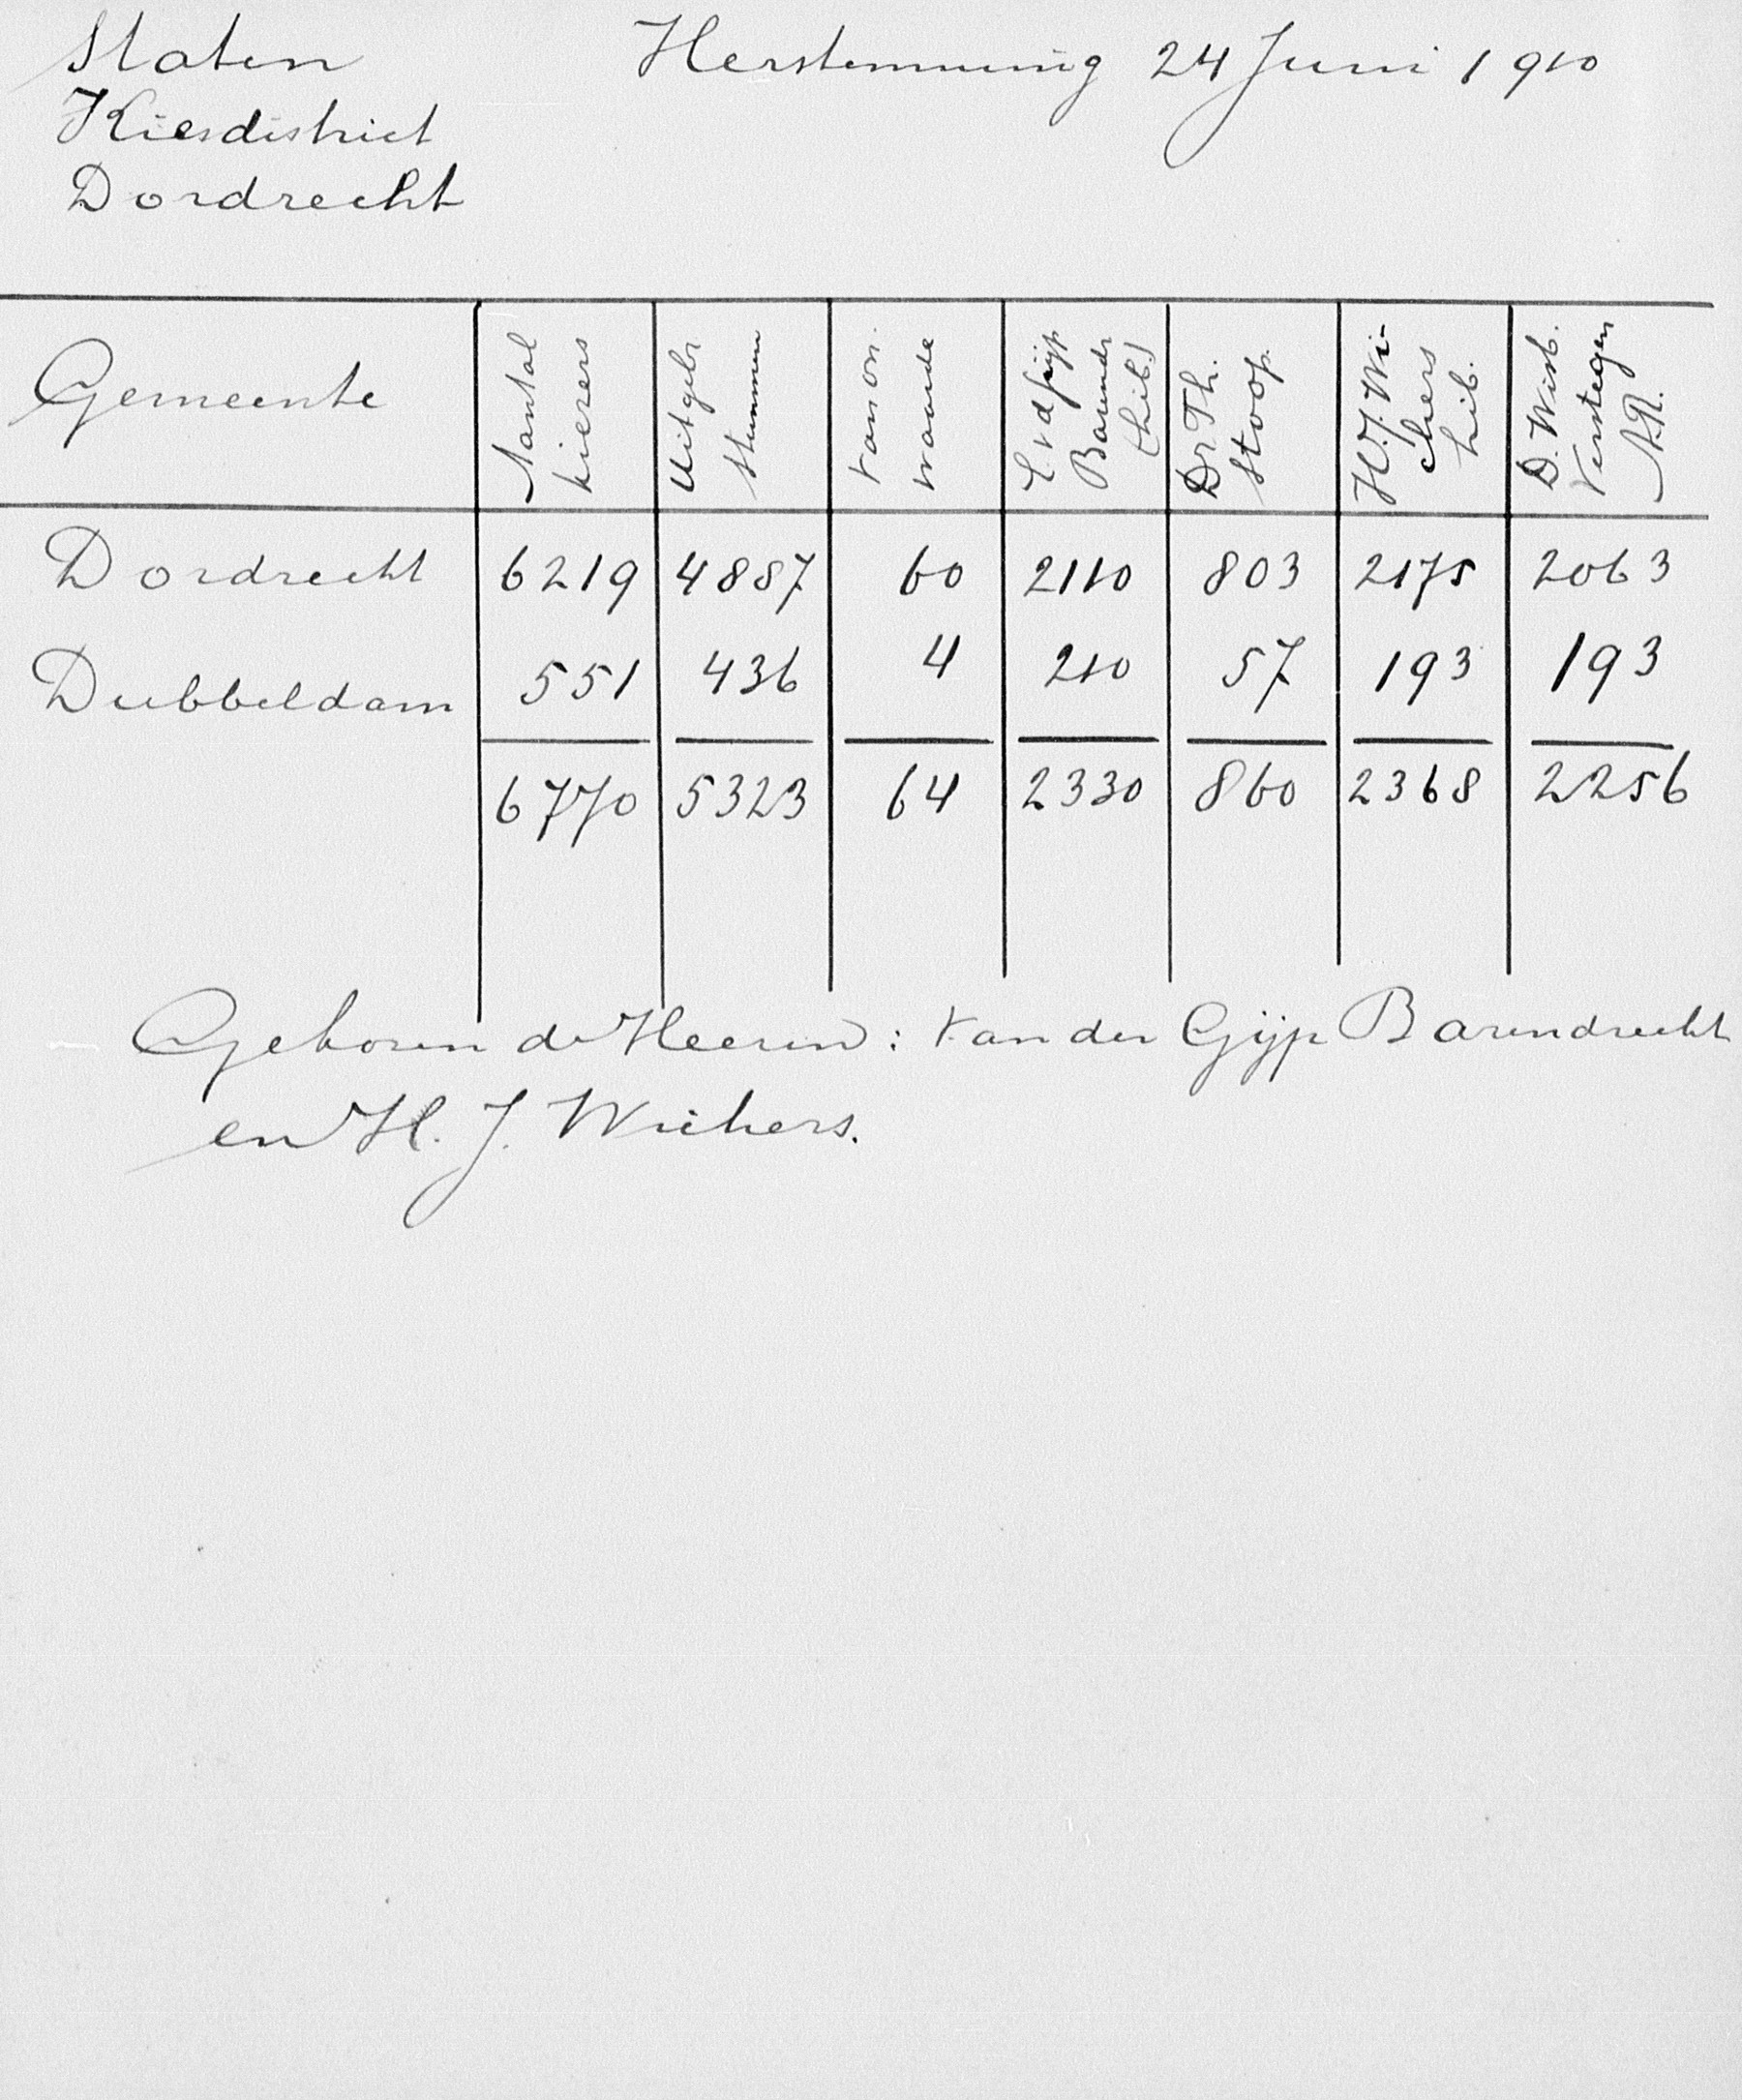 Staten Herstemming 24 Juni 1910
Kiesdistrict
Dordrecht
Gemeente
Aantal kiezers
Uitgebr stemmen
van on waarde
Barendr (Lib.)
Dr. Th. Stoop.
H.J. Wi- chers Lib.
D. Wisb. Verstegen A.R.
Dordrecht 6219 4887 60 2110 803 2175 2063
Dubbeldam 551 436 4 210 57 193 193
6770 5323 64 2330 860 2368 2256
Gekozen de Heeren: van der Gijp Barendrecht
en H. J. Wichers.